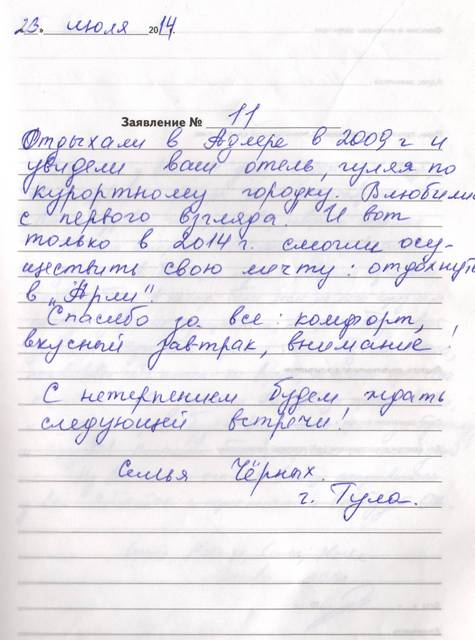 23. июля 2014.
Заявление № 11
Отдыхали в Адлере в 2009 г и
увидели ваш отель, гуляя по
курортному городку. Влюбились
с первого взгляда. И вот
только в 2014 г. смогли осу-
ществить свою мечту: отдохнуть
в "Арли"
Спасибо за все: комфорт,
вкусный завтрак, внимание!
С нетерпением будем ждать
следующей встречи!
Семья Чёрных.
г. Тула.